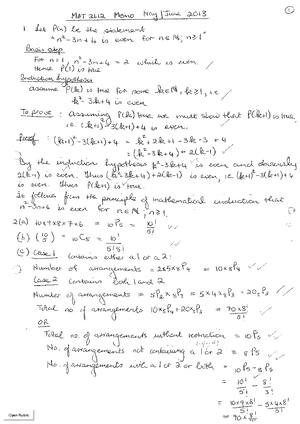 ①
MAT 2112 Memo May/June 2013
1. Let P(n) be the statement
"n²-3n+4 is even for n∈N, n≥1"
Basis step
For n=1, n²-3n+4 = 2 which is even.
Hence P(1) is true
Induction hypothesis
assume P(k) is true for some k∈N, k≥1, i.e
k²-3k+4 is even
To prove : assuming P(k) true we must show that P(k+1) is true,
i.e. (k+1)²-3(k+1)+4 is even.
Proof : (k+1)²-3(k+1)+4 = k²+2k+1-3k-3+4
= (k²-3k+4)+2(k-1)
By the induction hypothesis k²-3k+4 is even and obviously
2(k-1) is even. Thus (k²-3k+4)+2(k-1) is even, i.e. (k+1)²-3(k+1)+4
is even. Thus P(k+1) is true.
It follows from the principle of mathematical induction that
n²-3n+4 is even for n∈N, n≥1.
2(a) 10×9×8×7×6 = 10P5 = 10!/5!
(b) (10 5) = 10C5 = 10!/5!5!
(c) Case 1 Contains either a 1 or a 2:
Number of arrangements = 2×5×8P4 = 10×8P4
Case 2 Contains both 1 and 2
Number of arrangements = 5P2×8P3 = 5×4×8P3 = 20×8P3
Total no of arrangements 10×8P4+20×8P3 =
OR
Total no. of arrangements without restriction = 10P5
No. of arrangements not containing a 1 or 2 = 8P5
No. of arrangements with a 1 or 2 or both = 10P5-8P5
= 10!/5! - 8!/3!
Open Rubric